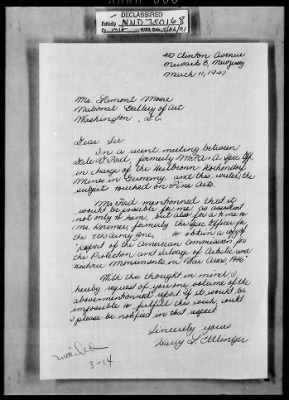 DECLASSIFIED
Authority NND 750168
410 Clinton Avenue
Newark 8, New Jersey
March 11, 1947
Mr. Lamont Moore
National Gallery of Art
Washington, D.C.
Dear Sir:
In a recent meeting between
Dale V. Ford, formerly MFA & A Spec. Off.
in charge of the Heilbronn Kochendorf
Mines in Germany and this writer, the
subject touched on Fine Arts.
Mr. Ford mentioned that it
would be possible for me as assistant
not only to him, but also for a time to
Mr. Rorimer formerly the Officer for
the 7th Army to obtain a copy of
"Report of the American Commission for
the Protection and Salvage of Artistic and
Historic Monuments in War Areas, 1946"
With this thought in mind I
hereby request of you one volume of the
above mentioned report. If it would be
impossible to fulfill this wish, could
I please be notified in that respect
Sincerely yours
Harry L. Ettlinger
3-14